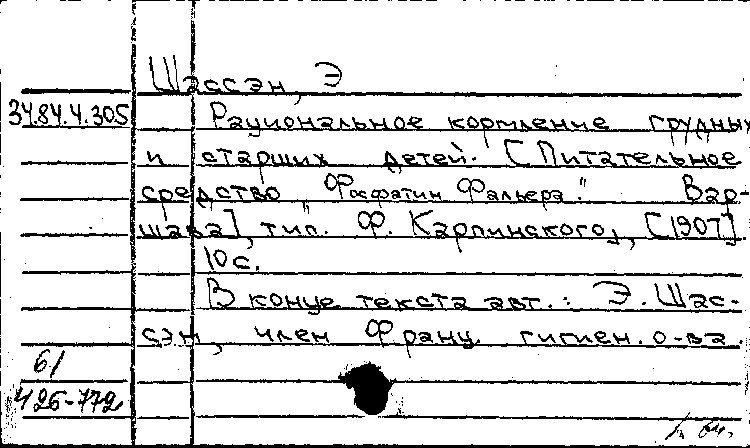 Шассэн, Э
34.84.4.305
Рациональное кормление грудных
и старших детей. [Питательное
средство „Фосфатин Фальера." Вар-
шава], тип. Ф. Карпинского, [1907].
10 с.
В конце текста авт.: Э. Шас-
сэн, член Франц. гигиен. о-ва.
61
426-772